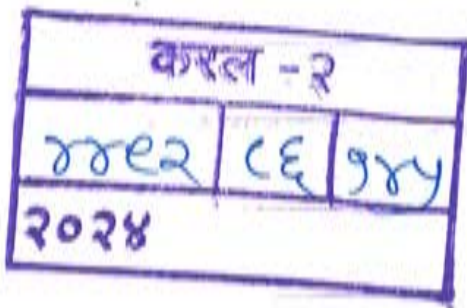 करल - २
४४९२ ८६ १४५
२०२४